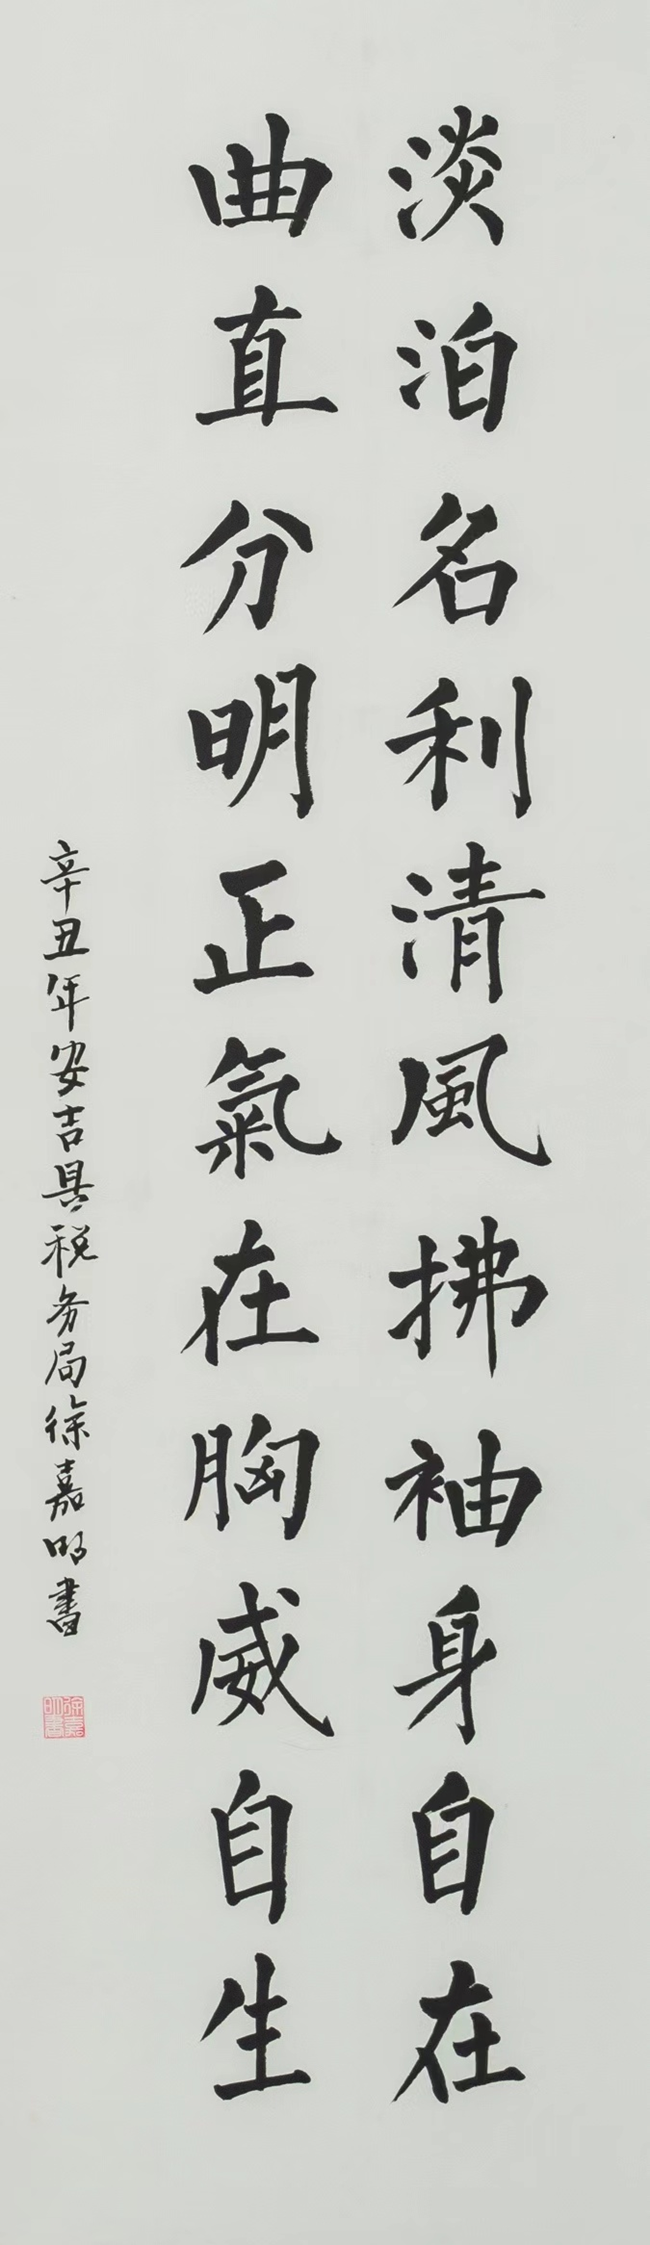 淡泊名利清風拂袖身自在
曲直分明正氣在胸威自生
辛丑年安吉县税务局徐嘉明書
徐嘉明書